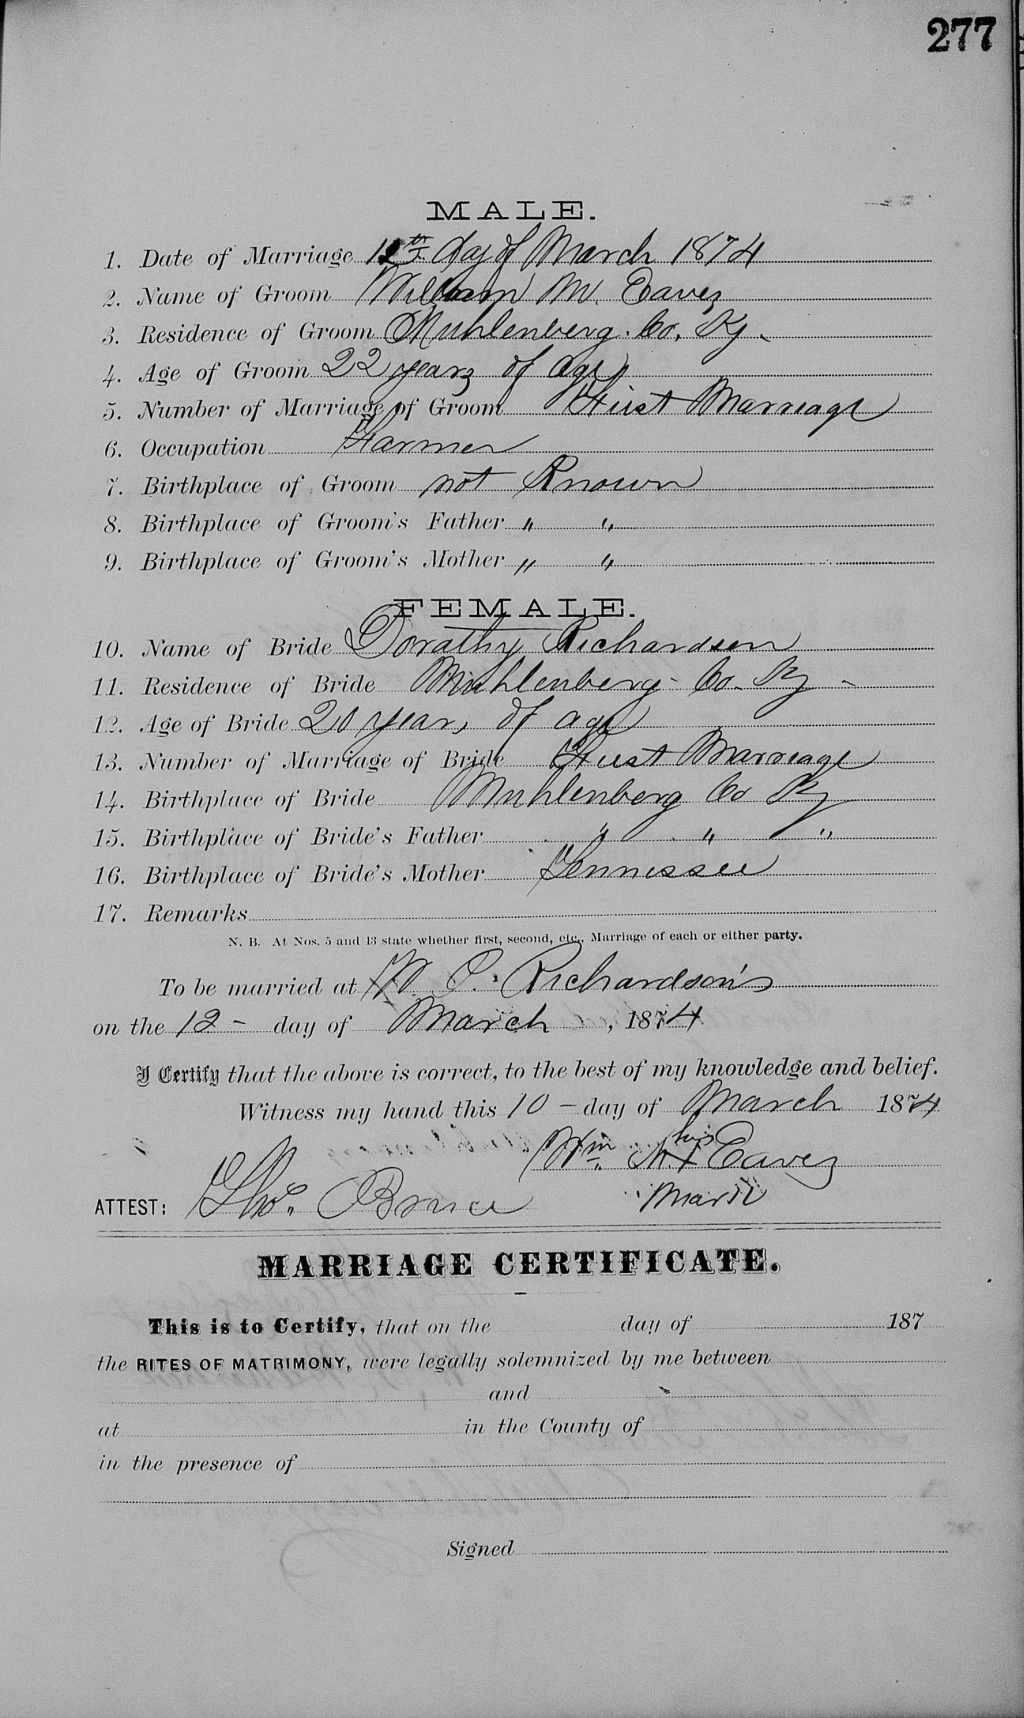 277
MALE.
1. Date of Marriage 12th day of March 1874
2. Name of Groom William M. Eaves
3. Residence of Groom Muhlenberg. Co. Ky.
4. Age of Groom 22 years of age
5. Number of Marriage of Groom First Marriage
6. Occupation Farmer
7. Birthplace of Groom not Known
8. Birthplace of Groom's Father " "
9. Birthplace of Groom's Mother " "
FEMALE.
10. Name of Bride Dorathy Richardson
11. Residence of Bride Muhlenberg- Co- Ky -
12. Age of Bride 20 years of age
13. Number of Marriage of Bride First Marriage
14. Birthplace of Bride Muhlenberg Co Ky
15. Birthplace of Bride's Father " " "
16. Birthplace of Bride's Mother Tennessee
17. Remarks
N. B. At Nos. 5 and 13 state whether first, second, etc., Marriage of each or either party.
To be married at Richardson's
on the 12 - day of March , 1874
I Certify that the above is correct, to the best of my knowledge and belief.
Witness my hand this 10 - day of March 1874
his
Wm. M. X Eaves
mark
ATTEST: Tho. Bruce
MARRIAGE CERTIFICATE.
This is to Certify, that on the day of 187
the RITES OF MATRIMONY, were legally solemnized by me between
and
at in the County of
in the presence of
Signed